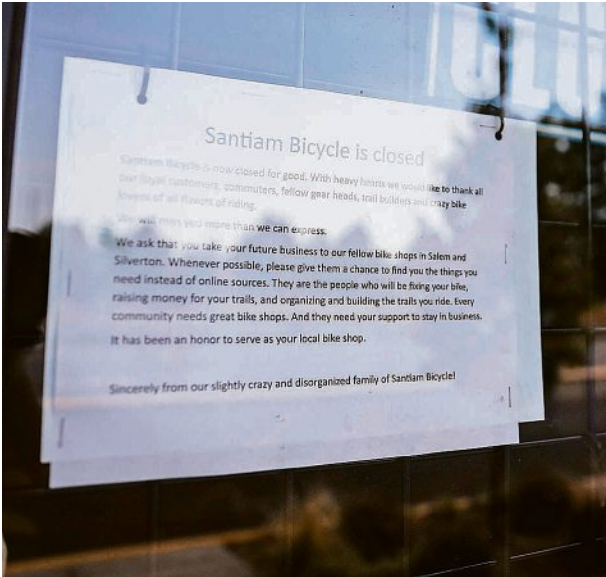 CLO
Santiam Bicycle is closed
Santiam Bicycle is now closed for good. With heavy hearts we would like to thank all
our loyal customers, commuters, fellow gear heads, trail builders and crazy bike
lovers of all flavors of riding.
We will miss you more than we can express.
We ask that you take your future business to our fellow bike shops in Salem and
Silverton. Whenever possible, please give them a chance to find you the things you
need instead of online sources. They are the people who will be fixing your bike,
raising money for your trails, and organizing and building the trails you ride. Every
community needs great bike shops. And they need your support to stay in business.
It has been an honor to serve as your local bike shop.
Sincerely from our slightly crazy and disorganized family of Santiam Bicycle!